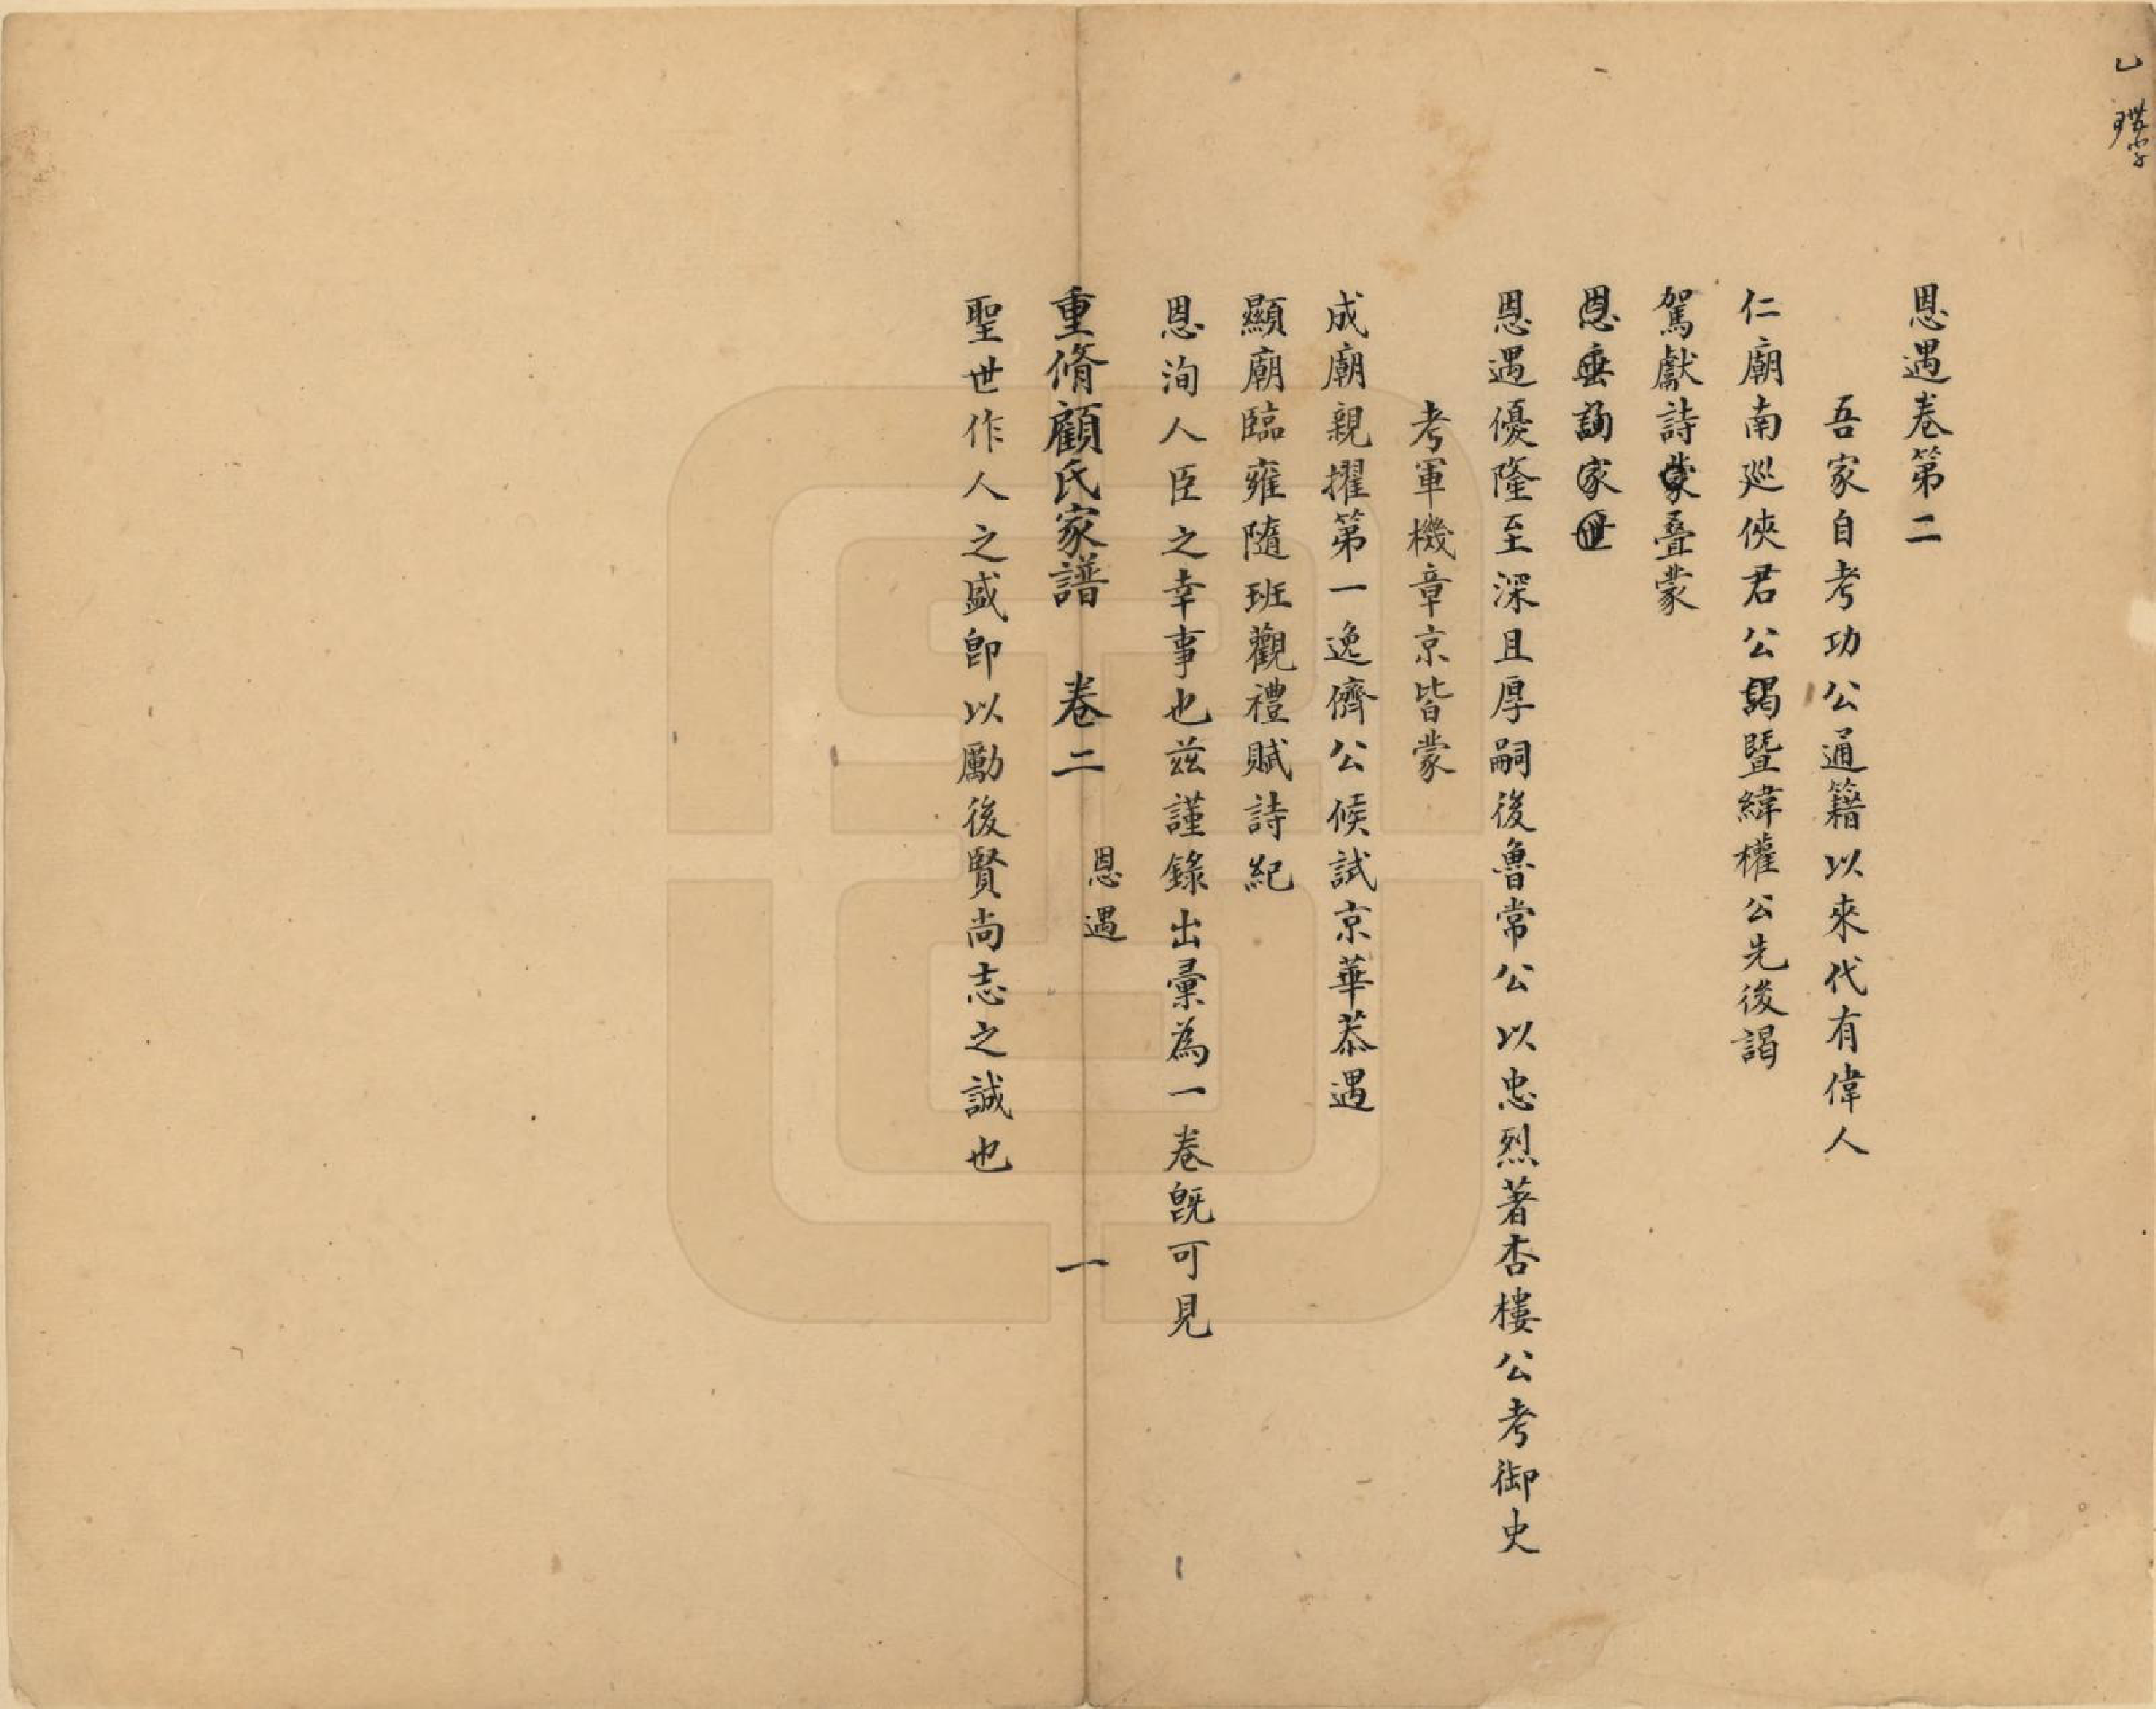 恩遇卷第二
吾家自考功公通籍以來代有偉人
仁廟南巡俠君公暨緯權公先後謁
駕獻詩蒙疊蒙
恩垂詢家世
恩遇優隆至深且厚嗣後魯常公以忠烈著杏樓公考御史
考軍機章京皆蒙
成廟親擢第一逸儕公候試京華恭遇
顯廟臨雍隨班觀禮賦詩紀
恩洵人臣之幸事也茲謹錄出彙為一卷旣可見
重脩顧氏家譜 卷二 恩遇 一
聖世作人之盛卽以勵後賢尚志之誠也